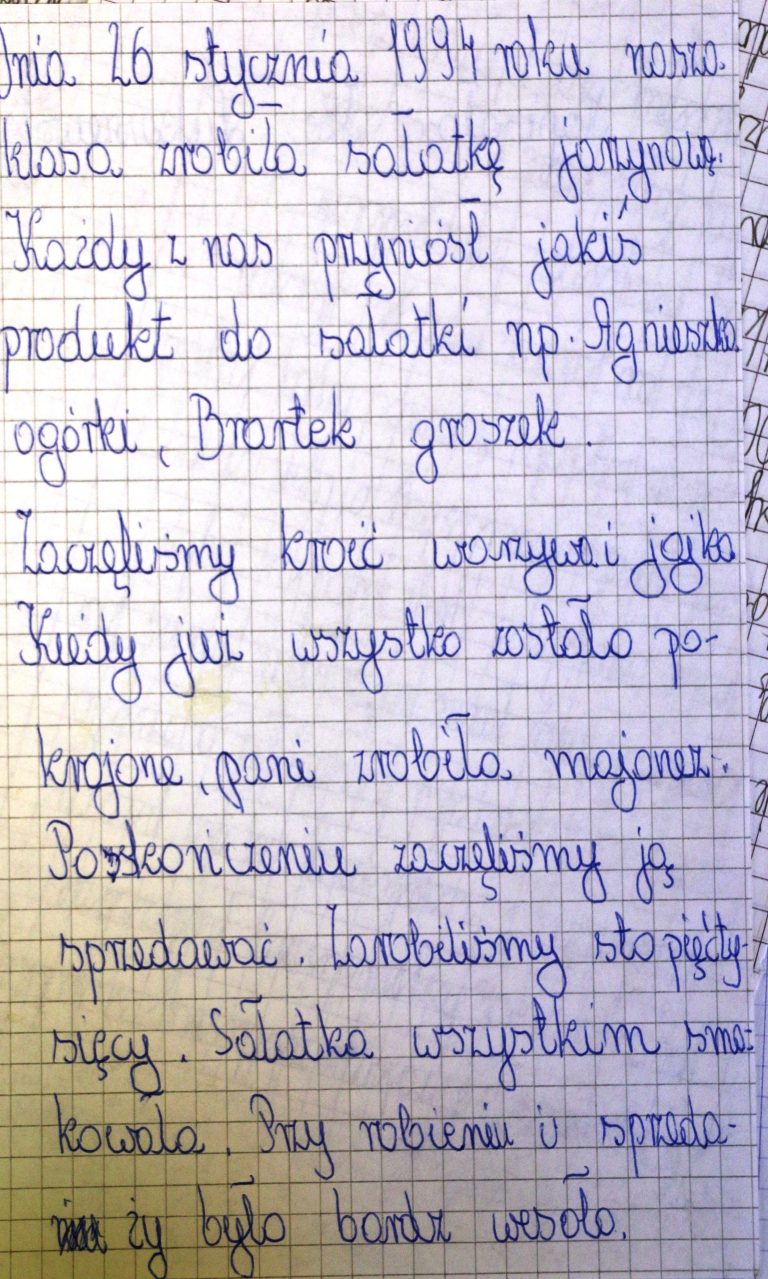 Dnia 26 stycznia 1994 roku nasza
klasa zrobiła sałatkę jarzynową.
Każdy z nas przyniósł jakiś
produkt do sałatki np. Agnieszka
ogórki, Brartek groszek.
Zaczęliśmy kroić warzywa i jajka
Kiedy już wszystko zostało po-
krojone, pani zrobiła majonez.
Poskończeniu zaczęliśmy ją
sprzedawać. Zarobiliśmy sto pięćty-
sięcy. Sałatka wszystkim sma-
kowała. Przy robieniu i sprzeda-
ży było bardz wesoło.